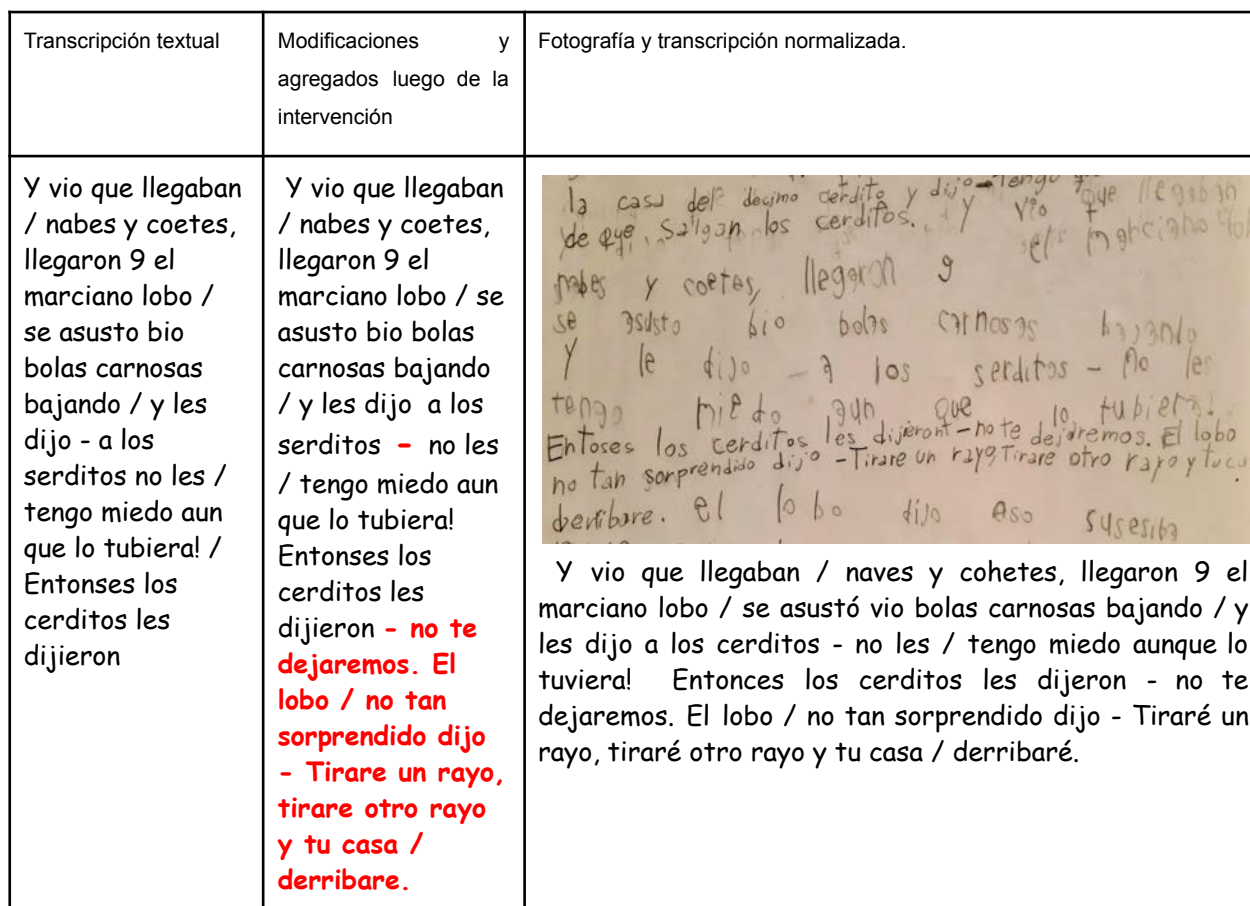 Transcripción textual
Modificaciones y
agregados luego de la
intervención
Fotografía y transcripción normalizada.
Y vio que llegaban
/ nabes y coetes,
llegaron 9 el
marciano lobo /
se asusto bio
bolas carnosas
bajando / y les
dijo - a los
serditos no les /
tengo miedo aun
que lo tubiera! /
Entonses los
cerditos les
dijieron
Y vio que llegaban
/ nabes y coetes,
llegaron 9 el
marciano lobo / se
asusto bio bolas
carnosas bajando
/ y les dijo a los
serditos - no les
/ tengo miedo aun
que lo tubiera!
Entonses los
cerditos les
dijieron - no te
dejaremos. El
lobo / no tan
sorprendido dijo
- Tirare un rayo,
tirare otro rayo
y tu casa /
derribare.
la casa del decimo cerdito y dijo - Tengo
de que salgan los cerditos. Y vio que llegaban
nabes y coetes, llegaron 9 el marciano
se asusto bio bolas carnosas bajando
Y le dijo - a los serditos - no les
tengo miedo aun que lo tubiera!
Entoses los cerditos les dijieron - no te dejaremos. El lobo
no tan sorprendido dijo - Tirare un rayo, Tirare otro rayo y tu
derribare. el lobo dijo eso
Y vio que llegaban / naves y cohetes, llegaron 9 el
marciano lobo / se asustó vio bolas carnosas bajando / y
les dijo a los cerditos - no les / tengo miedo aunque lo
tuviera! Entonces los cerditos les dijeron - no te
dejaremos. El lobo / no tan sorprendido dijo - Tiraré un
rayo, tiraré otro rayo y tu casa / derribaré.